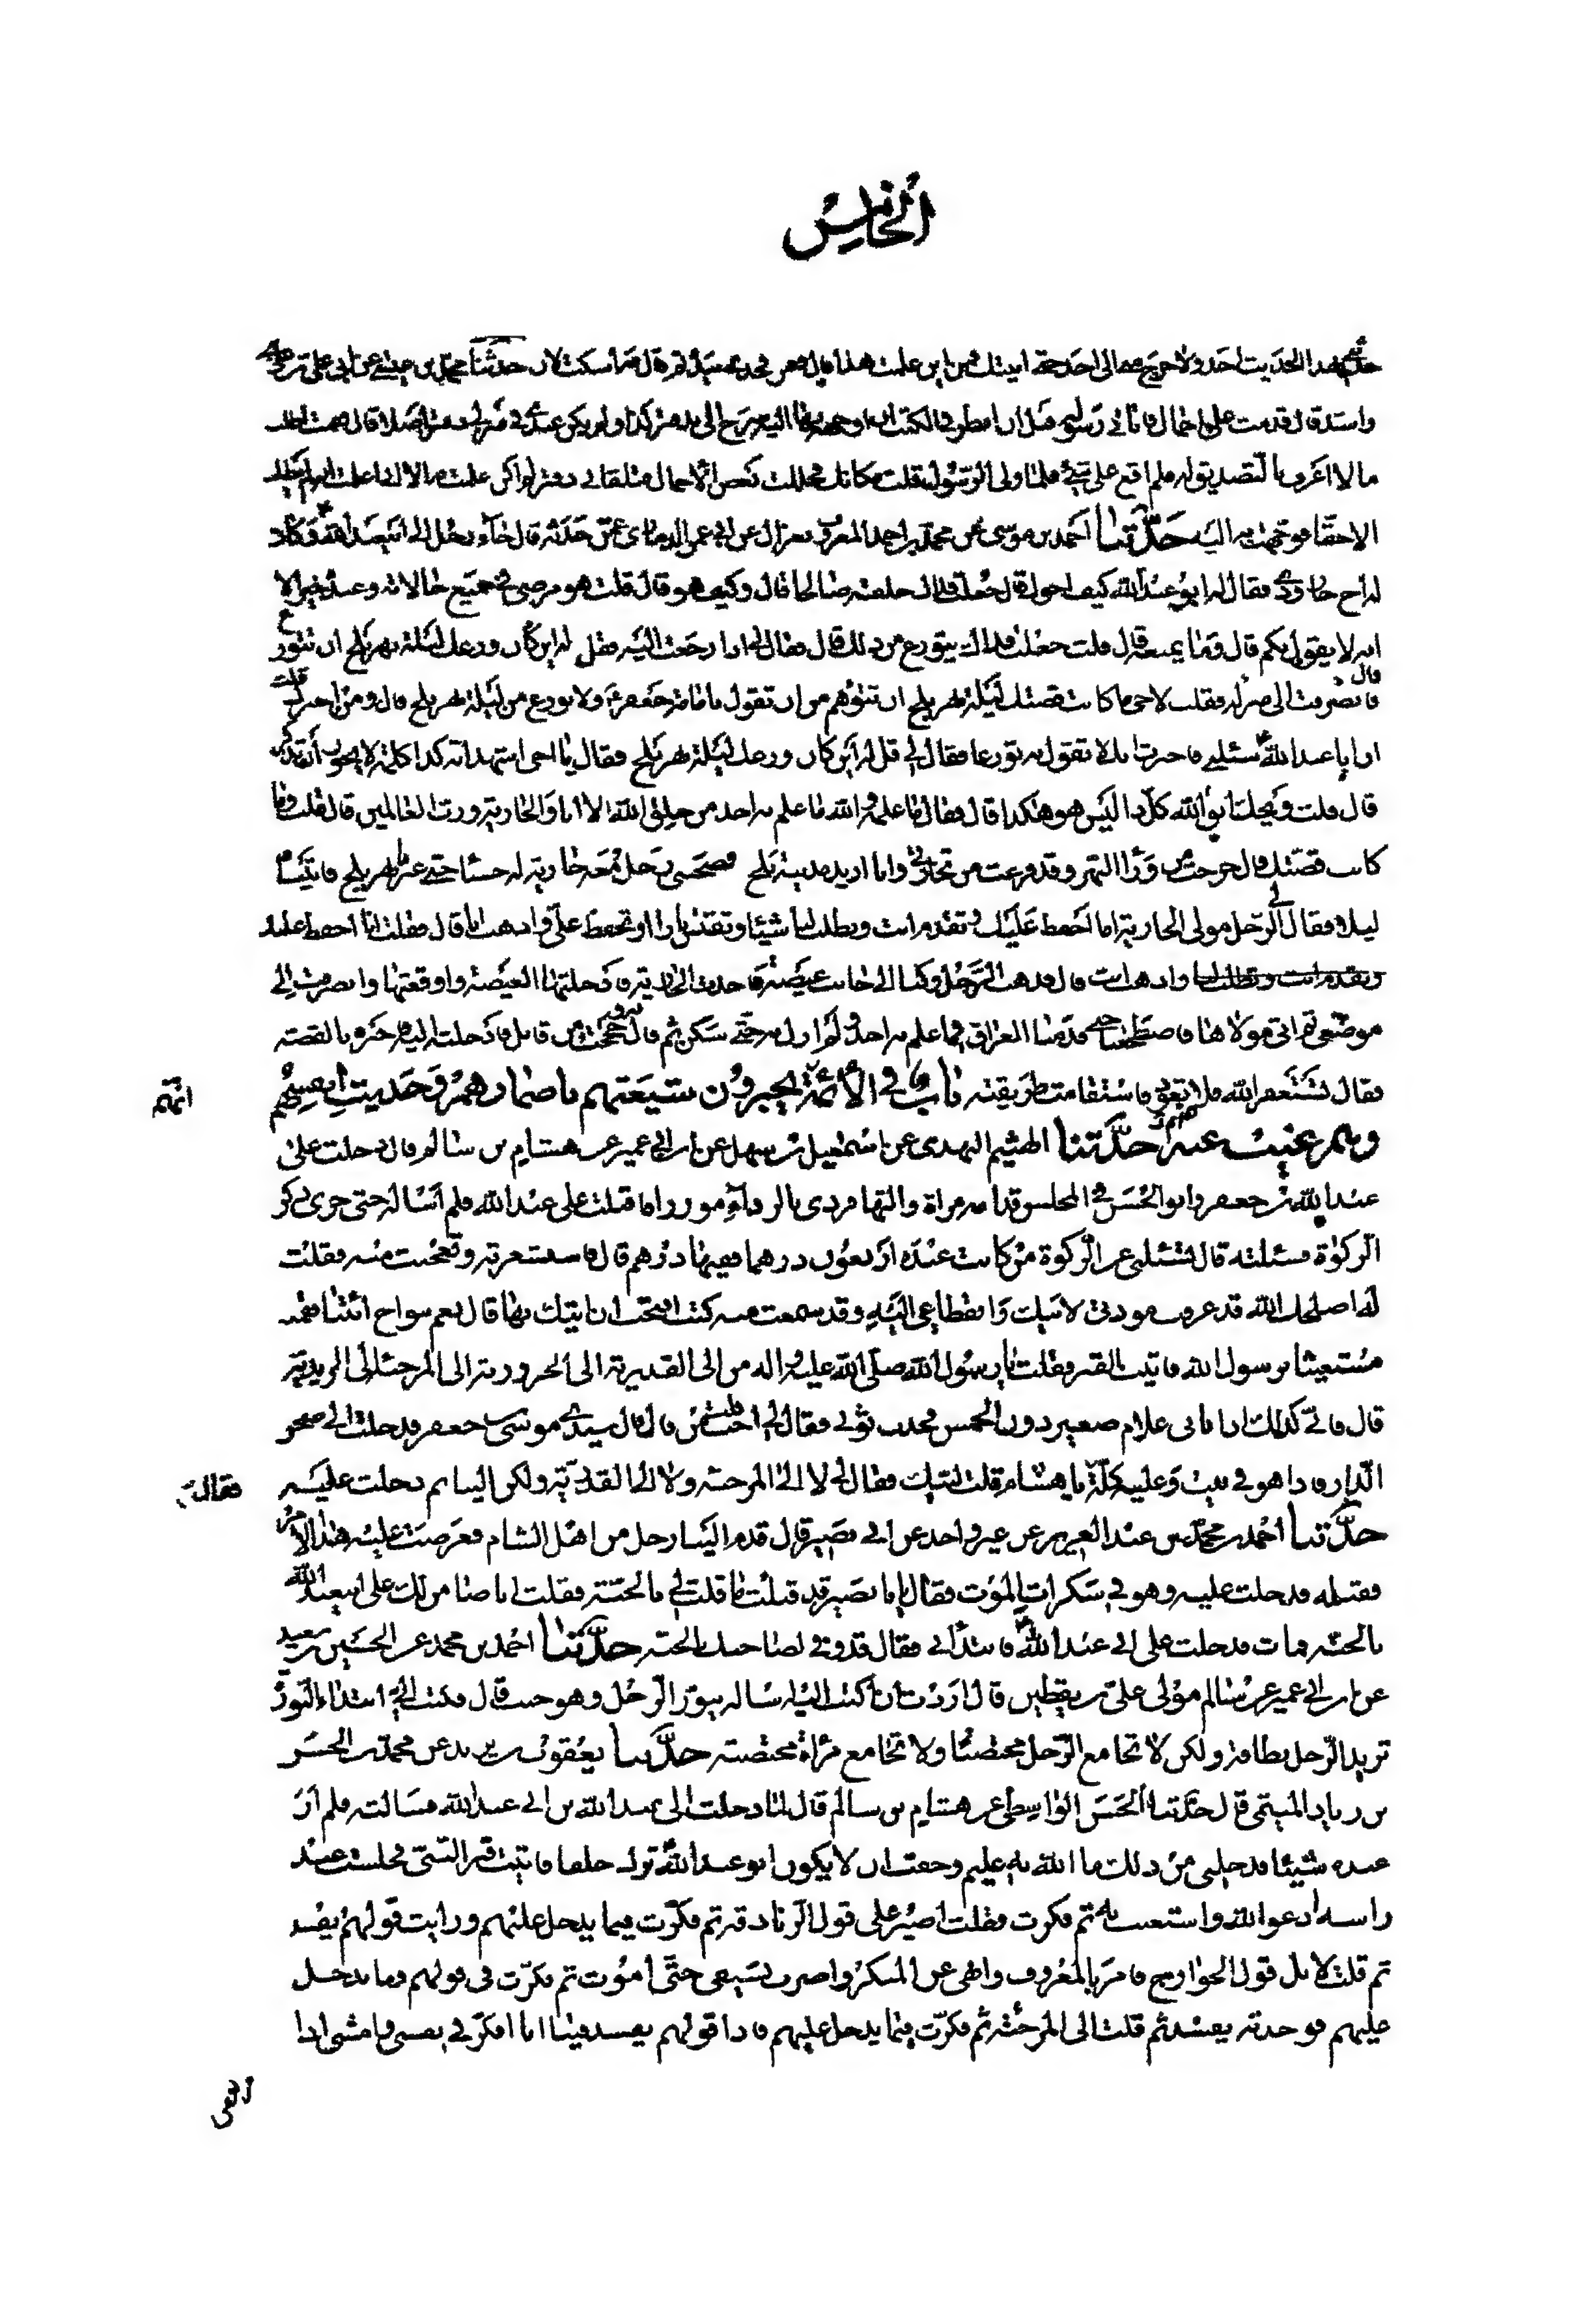 الخامس
الحديث احد ولا حتى اتيتك من اين علمت هذا قال حدثنا محمد بن عن ابي علي
قال قدمت علي احمال فاتاني رسوله قبل ان انظر في الكتب ان اوجه بها اليه سرح الي بدفتر كذا ولم يكن عندي في منزلي دفتر اصلا قال فقمت اطلب
ما لا اعرف بالتصديق له فلم اقع على شيء فلما ولى الرسول قلت مكانك فحللت بعض الاحمال فتلقاني دفتر لم اكن علمت به الا اني علمت انه لم يطلب
الا حقا فوجهت به اليه حدثنا احمد بن موسى عن محمد بن احمد المعروف بغزال عن ابي عمر عمن حدثه قال جاء رجل الى ابي عبد الله وكان
له اخ فقال له ابو عبد الله كيف اخوك قال جعلت فداك خلفته صالحا قال وكيف هو قال قلت هو مرضي في جميع حالاته وعنده خير الا
انه لا يقول بكم قال وما يمنعه قال قلت جعلت فداك يتورع من ذلك قال فقال لي اذا رجعت اليه فقل له اين كان ورعك ليلة نهر بلخ ان تتورع
قال فانصرفت الى منزله فقلت لاخي ما كانت قصتك ليلة نهر بلخ ان تتورع من ان تقول بامامة جعفر ولا تورع من ليلة نهر بلخ قال ومن اخبرك قلت
ان ابا عبد الله سئلني فاخبرته انك لا تقول به تورعا فقال لي قل له اين كان ورعك ليلة نهر بلخ فقال يا اخي اشهد انه كذا كلمة لا يجوز ان تذكر
قال قلت ويحك اتق الله كل ذا ليس هو هكذا قال فقال ما علمه والله ما علم به احد من خلق الله الا انا والجارية ورب العالمين قال قلت وما
كانت قصتك قال خرجت من وراء النهر وقد فرغت من تجارتي وانا اريد مدينة بلخ فصحبني رجل معه جارية له حسناء حتى عبرنا نهر بلخ فاتيناه
ليلا فقال لي الرجل مولى الجارية اما احفظ عليك وتقدم انت وتطلب لنا شيئا وتقتبس نارا او تحفظ علي واذهب انا قال فقلت انا احفظ عليك
واذهب انت قال فذهب الرجل وكنا الى جانب غيضة فاخذت الجارية فادخلتها الغيضة وواقعتها وانصرفت الى
موضعي ثم اتى مولاها فاضطجعنا حتى قدمنا العراق فما علم به احد ولم ازل به حتى سكن ثم قال به وحججت من قابل فادخلته اليه فاخبره بالقصة
فقال تستغفر الله فلا تعود فاستقامت طريقته باب في الأئمة يخبرون شيعتهم باضمارهم وحديث انفسهم
انهم
وهم غيب عنهم حدثنا الهيثم النهدي عن اسمعيل بن سهل عن ابن ابي عمير عن هشام بن سالم قال دخلت على
عبد الله بن جعفر وابو الحسن في المجلس قدامه مراة والتها مردى بالرداء موزرا فاقبلت على عبد الله فلم اسأله حتى جرى ذكر
الزكوة فسئلته قال تسئلني عن الزكوة من كانت عنده اربعون درهما ففيها درهم قال فاستشعرته وتعجبت منه فقلت
له اصلحك الله قد عرفت مودتي لابيك وانقطاعي اليه وقد سمعت منه كتبا افتحب ان اتيك بها قال نعم بنو اخ ائتنا فقمت
مستغيثا برسول الله فاتيت القبر فقلت يا رسول الله صلى الله عليه واله من الى القدرية الى الحرورية الى المرجئة الى الزيدية
قال فاني كذلك اذ اتاني غلام صغير دون الخمس فجذب ثوبي فقال لي اجب قلت من قال قال سيدي موسى بن جعفر فدخلت الى صحن
الدار فاذا هو في بيت وعليه كلة فقال يا هشام قلت لبيك فقال لي لا الى المرجئة ولا الى القدرية ولكن الينا ثم دخلت عليه
فقال
حدثنا احمد بن محمد بن عبد العزيز عن غير واحد عن ابي بصير قال قدم الينا رجل من اهل الشام فعرضت عليه هذا الامر
فقبله فدخلت عليه وهو في سكرات الموت فقال يا ابا بصير قد قبلت ما قلت لي فكيف لي بالجنة فقلت انا ضامن لك على ابي عبد الله
بالجنة فمات فدخلت على ابي عبد الله فابتداني فقال قد وفي لصاحبك بالجنة حدثنا احمد بن محمد عن الحسين بن سعيد
عن ابن ابي عمير عن سالم مولى علي بن يقطين قال اردت ان اكتب اليه اساله يتنور الرجل وهو جنب قال فكتب الي ابتداء النورة
تزيد الرجل نظافة ولكن لا تجامع الرجل مختضبا ولا تجامع مراة مختضبة حدثنا يعقوب بن يزيد عن محمد بن الحسين
بن زياد الميثمي قال حدثنا الحسن الواسطي عن هشام بن سالم قال لما دخلت الى عبد الله بن ابي عبد الله فسالته فلم ار
عنده شيئا فدخلني من ذلك ما الله به عليم وخفت ان لا يكون ابو عبد الله ترك خلفا فاتيت قبر النبي فجلست عند
راسه ادعو الله واستغيث به ثم فكرت فقلت اصير على قول الزنادقة ثم فكرت فيما يدخل عليهم ورايت قولهم يفسد
ثم قلت لا بل قول الخوارج فامر بالمعروف وانهى عن المنكر واضرب بسيفي حتى اموت ثم فكرت في قولهم وما يدخل
عليهم فوجدته يفسد ثم قلت الى المرجئة ثم فكرت فيما يدخل عليهم فاذا قولهم يفسد فبينا انا افكر في نفسي وامشي اذا